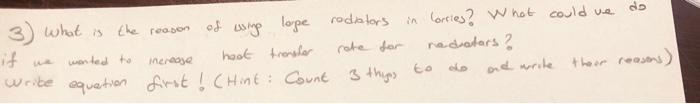 3) What is the reason of using large radiators in lorries? What could we do
if we wanted to increase heat transfer rate for radiators?
Write equation first! (Hint: Count 3 things to do and write their reasons)